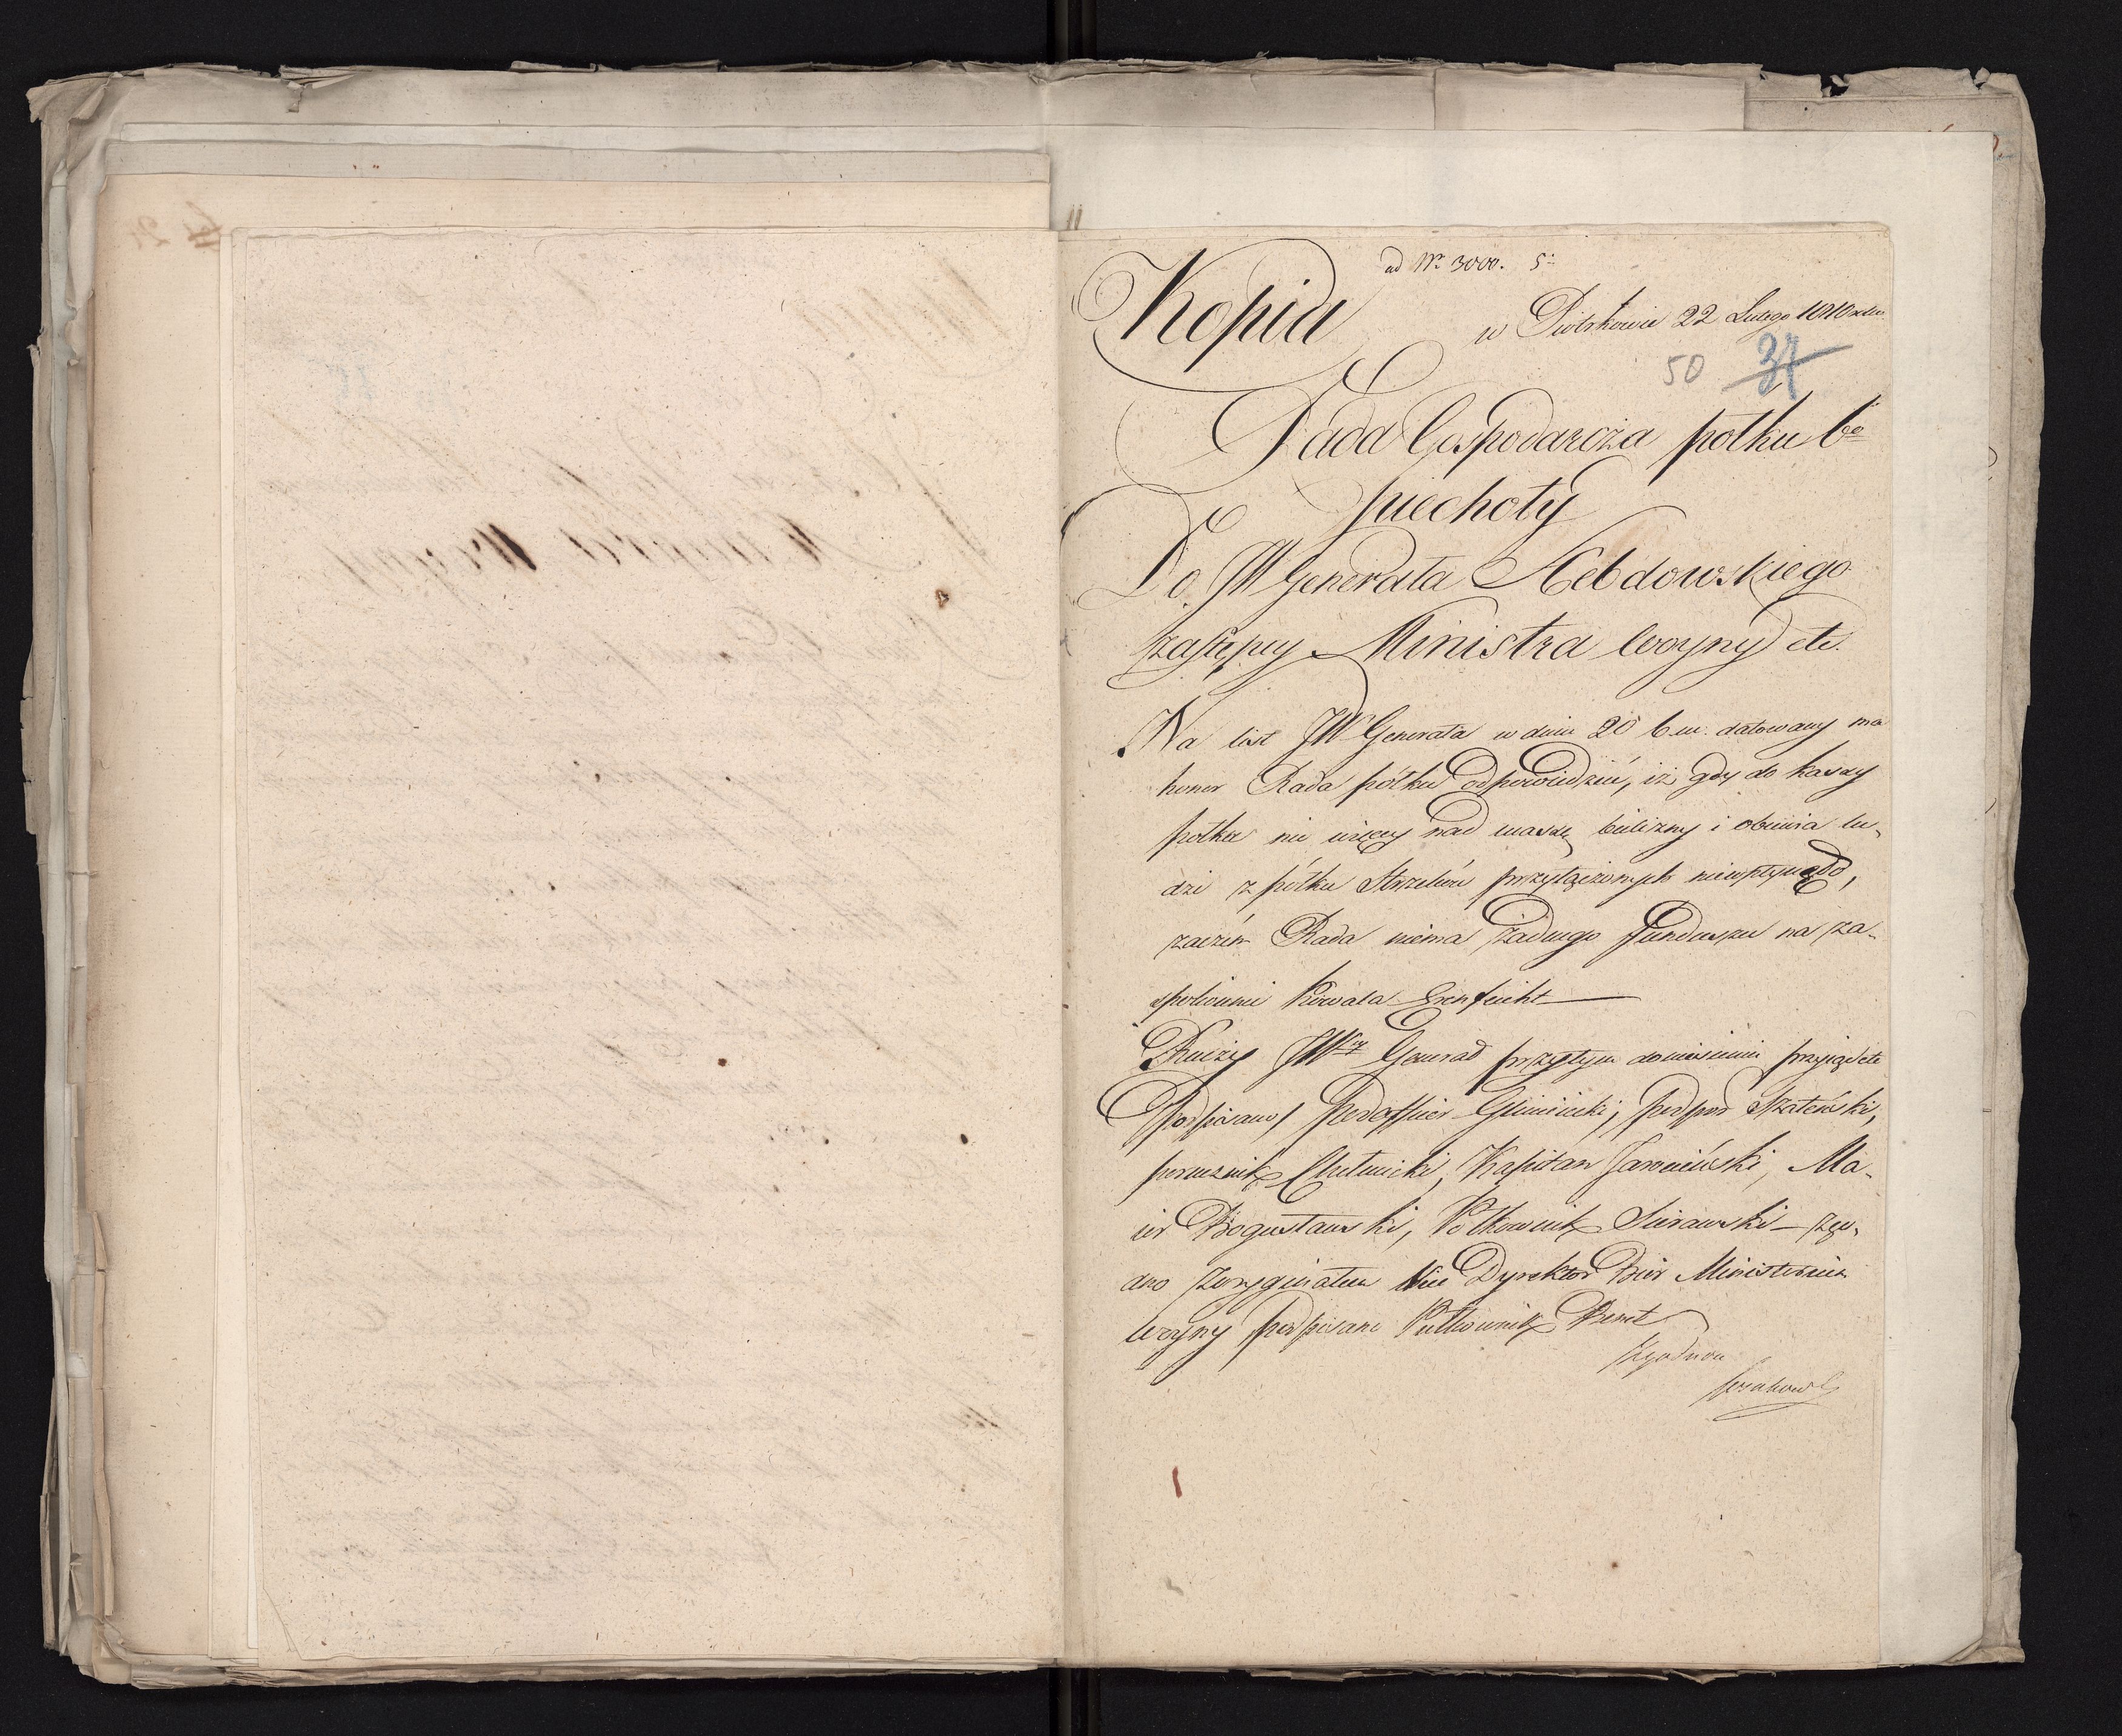 ad Nr 3000. 5:
Kopia
w Piotrkowie 22 Lutego 1810 roku
50 37
Rada Gospodarcza półku 6go
piechoty
Do JW Generała Hebdowskiego
zastępcy Ministra Woyny etc.
Na list JW Generała w dniu 20 b.m. datowany ma
honor Rada półku odpowiedzieć, iż gdy do kassy
półku nic więcey nad massę bielizny i obuwia lu-
dzi z półku Strzelców przyłączonych niewpłynęło,
zaczém Rada niema żadnego funduszu na za-
spokoienie Kowala Grenfeicht
Raczy JWny Generał przytym doniesieniu przyiąć etc
Podpisano podofficer Gliniecki, podpor Skaterski,
porucznik Chełmicki, Kapitan Jaroniewski, Ma-
ior Bogusławski, Półkownik Sierawski — zgo-
dno z oryginałem Vice Dyrektor Biór Ministerium
Woyny podpisano Pułkownik Benet
Zgodno